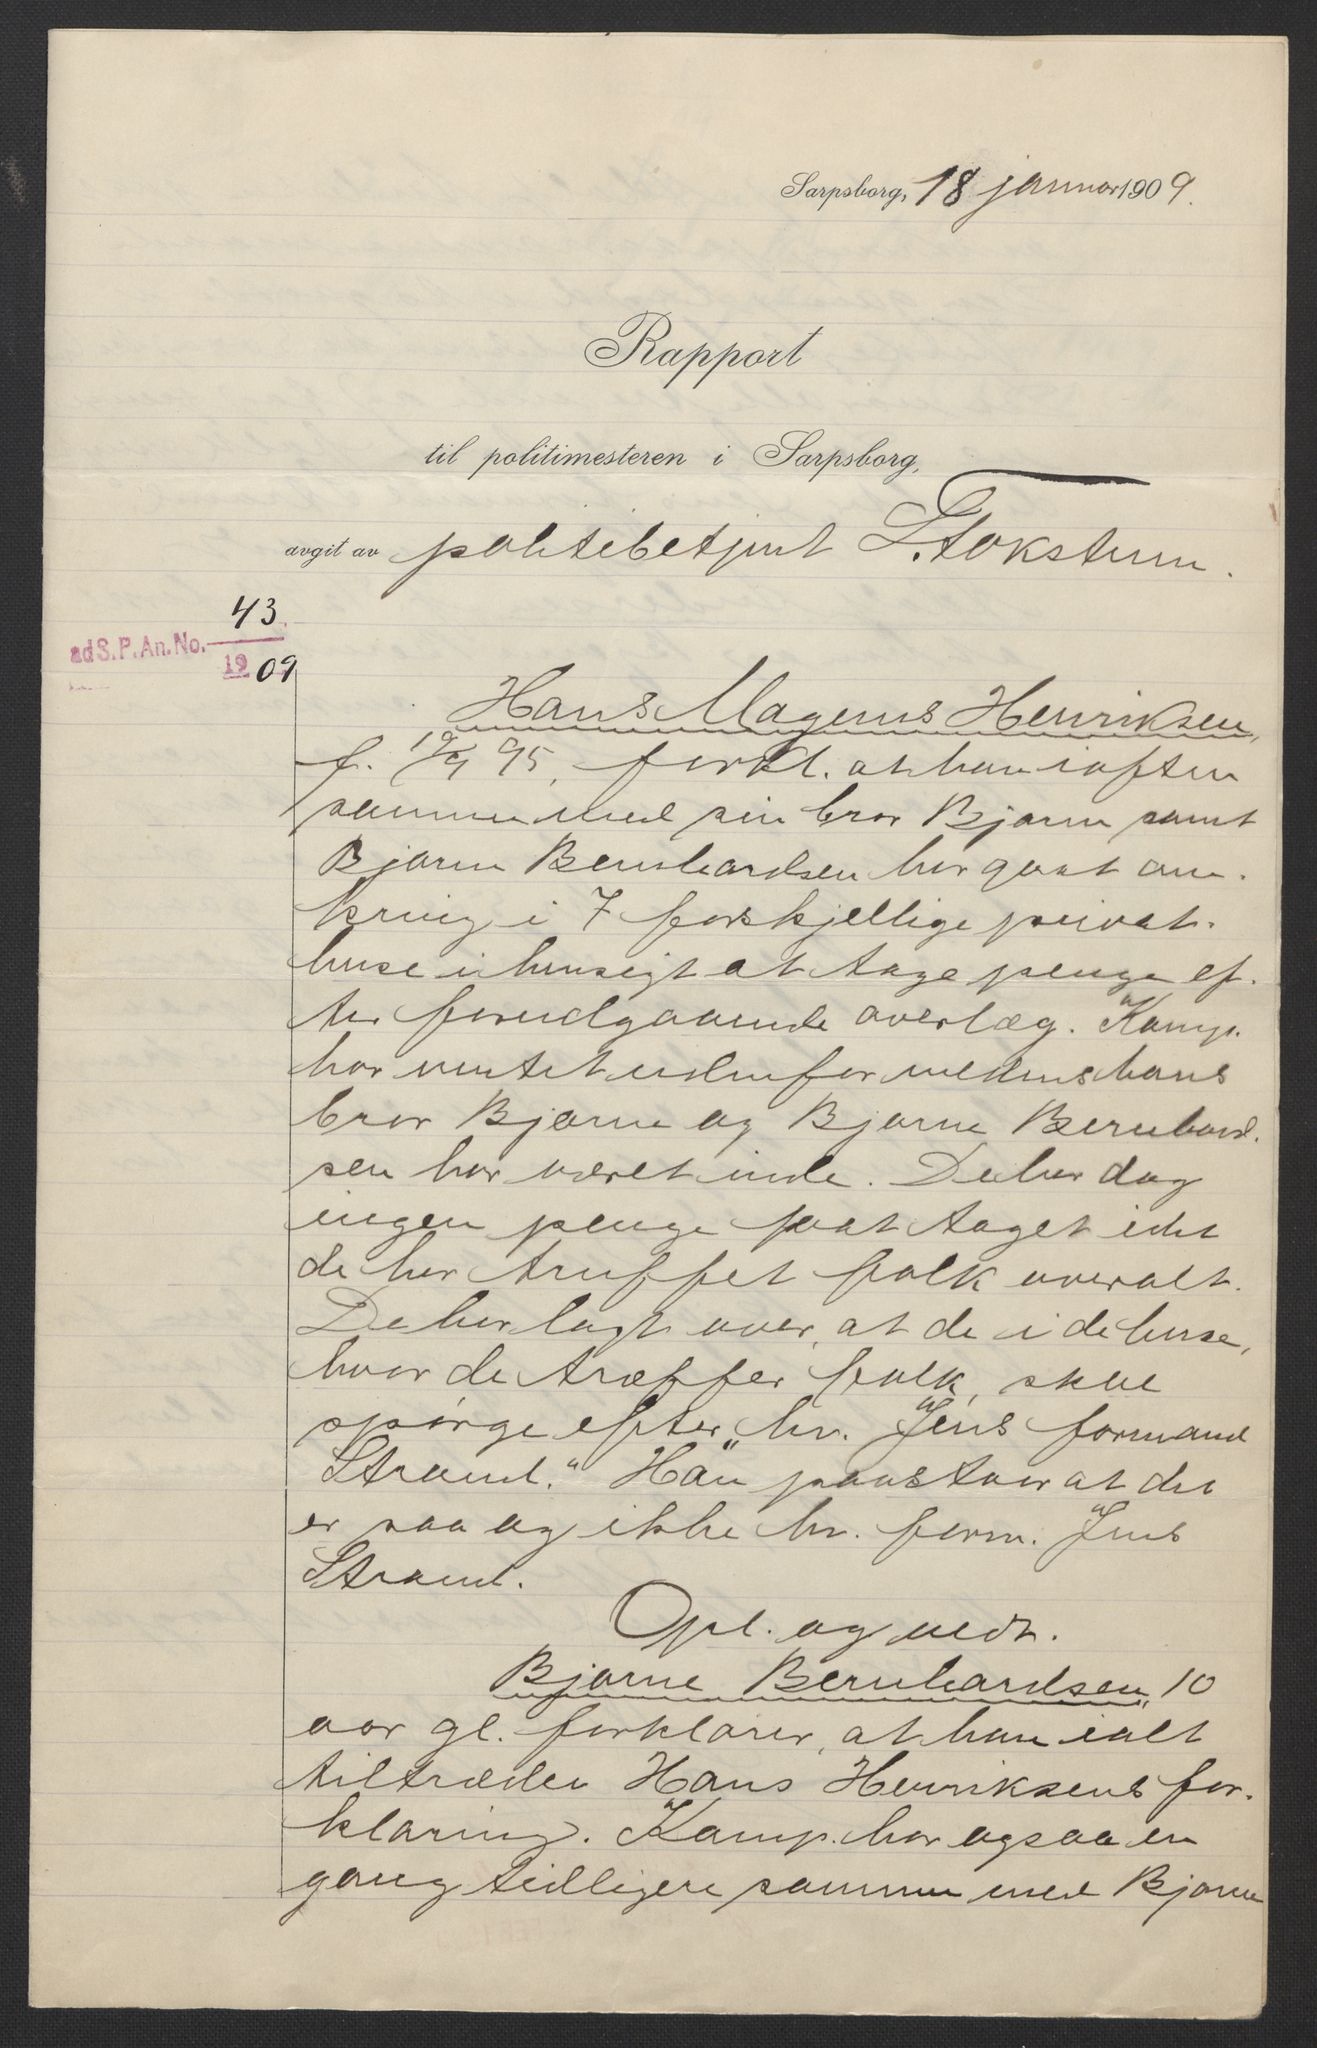 Sarpsborg, 18 januar 1909.
Rapport
til politimesteren i Sarpsborg,
avgit av politibetjent Stokstrum.
43
ad S. P. An. No.
19 09
Hans Magnus Henriksen,
f. 19/9 95, forkl. at han iaften
sammen med sin bror Bjarne samt
Bjarne Bernhardsen har gaat om-
kring i 7 forskjellige privat-
huse i hensigt at tage penge ef-
ter forudgaaende overlæg. Komp.
har ventet udenfor medens hans
bror Bjarne og Bjarne Bernhard-
sen har været inde. De har dog
ingen penge faat taget idet
de har truffet folk overalt.
De har lagt over, at de i de huse,
hvor de træffer folk, skal
spørge efter „hr. Jens formand
Strand.“ Han paastaar at det
er saa og ikke hr. form. Jens
Strand.
Opl. og vedt.
Bjarne Bernhardsen, 10
aar gl. forklarer, at han ialt
tiltræder Hans Henriksens for-
klaring. Komp. har ogsaa en
gang tidligere sammen med Bjarne